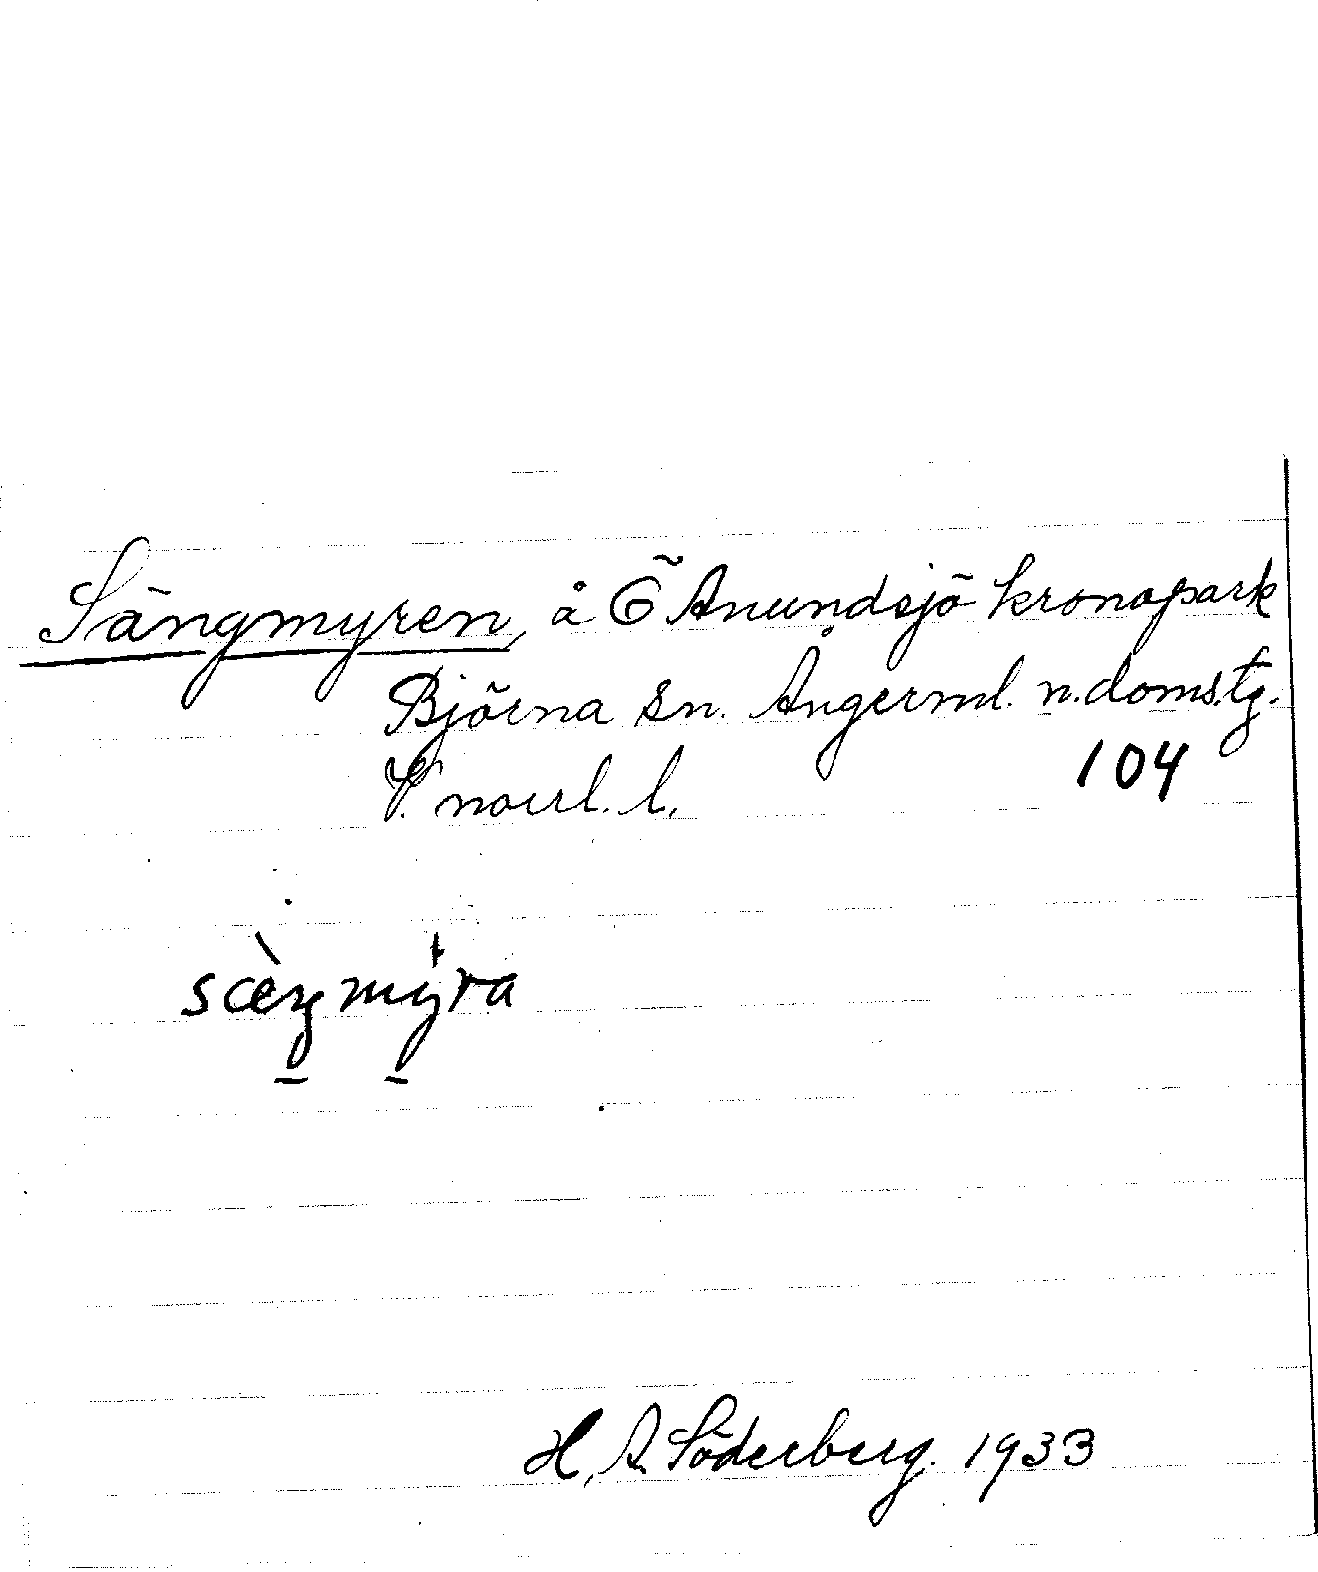 Sängmyren, å Ö Anundsjö kronopark
Björna sn. Ångerml. n. doms.tg.
V. norrl. l. 104
H. A. Söderberg. 1933